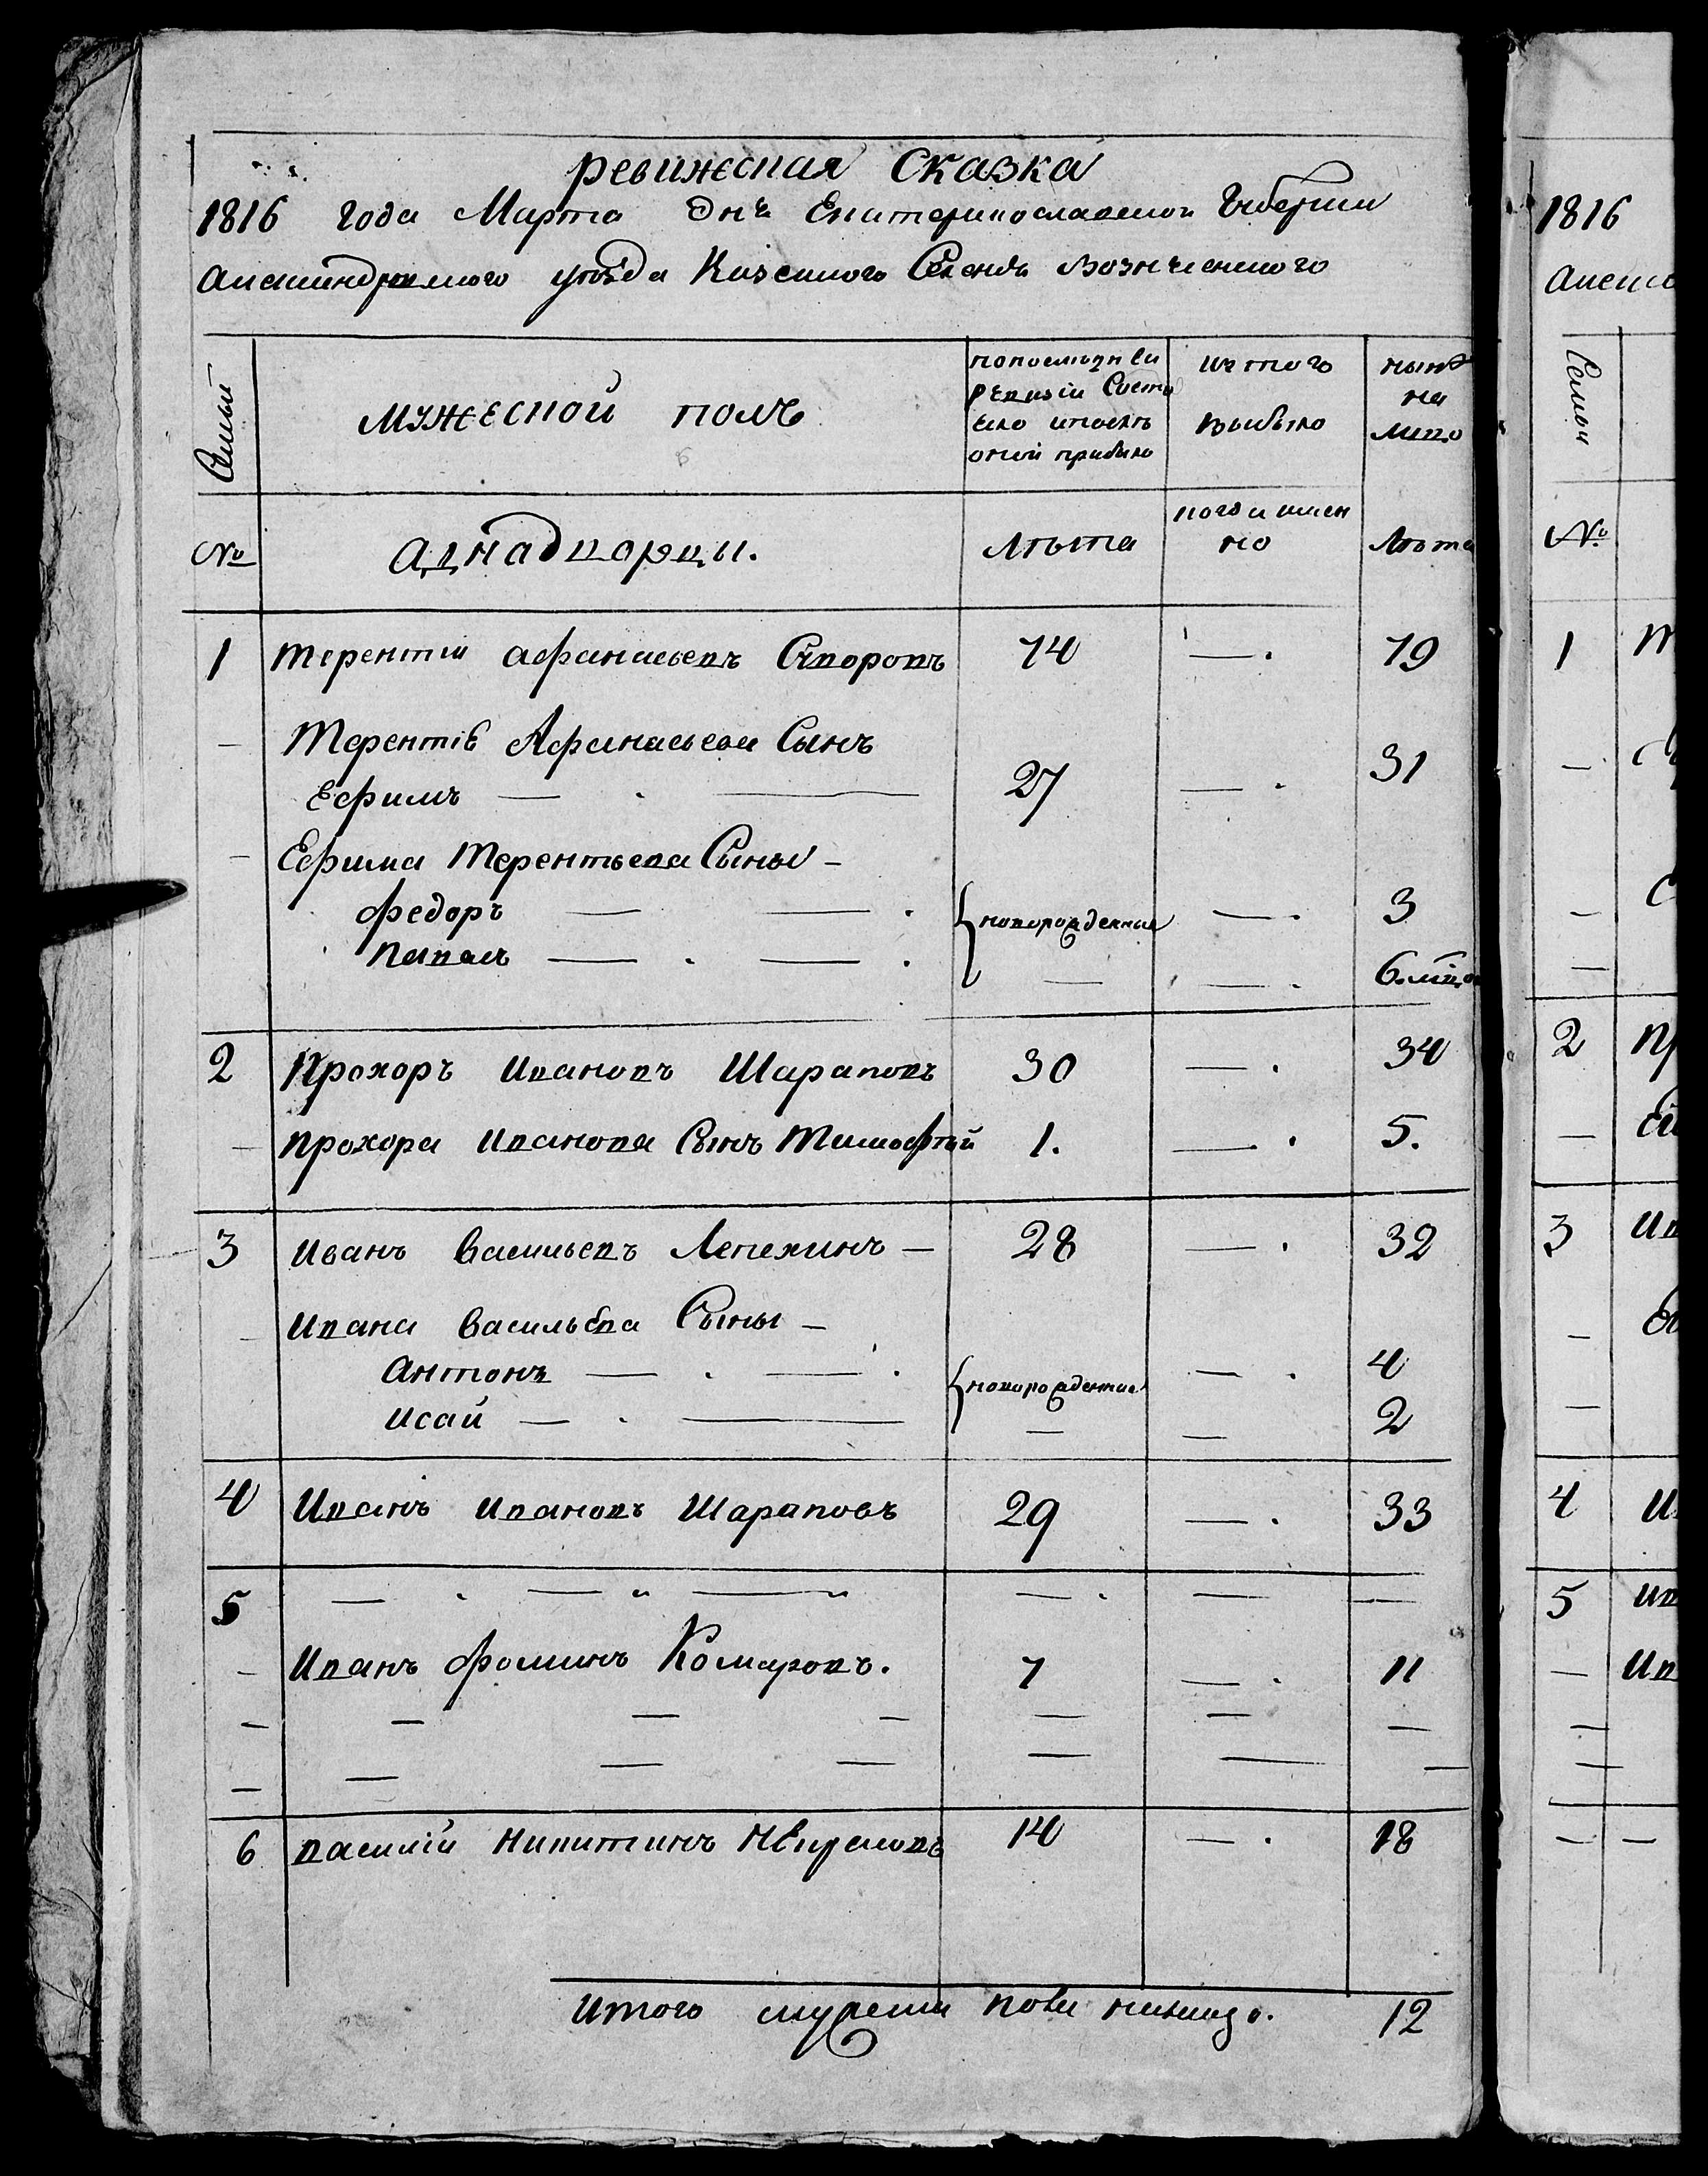 ревижеская Сказка
1816 года Марта дня Екатеринославской Губернии
Александрийского уезда Казенного Селения Вознесенского
Семьи
мужеской полъ
попоследней ревизіи состояло ипосле оной прибыло
изтого выбыло
ныне на лицо
№
аднадворцы.
Лѣта
когда имен но
Лѣта
1 терентій афанасьевъ Суворовъ 74 — . 79
— Терентія Афанасьева Сынъ
Ефимъ — . — 27 — . 31
— Ефима Терентьева Сыны —
федоръ — — . новорожденные — . 3
павелъ — . — . — — . 6.
2 Прохоръ Ивановъ Шараповъ 30 — . 34
— прохора иванова Сынъ Тимофей 1. — . 5.
3 иванъ васильевъ Лепехинъ — 28 — . 32
— ивана васильева Сыны —
антонъ — . — . новорожденные — . 4
исай — . — — — 2
4 Иванъ ивановъ Шараповъ 29 — . 33
5 — . — — — . — —
— иванъ фоминъ Комаровъ. 7 — . 11
— — — — — — —
— — — — — — —
6 василій никитинъ 14 — . 18
Итого мужеска пола налицо. 12
1816
Семьи
№
1
—
—
—
2
—
3
—
—
4
5
—
—
—
— —